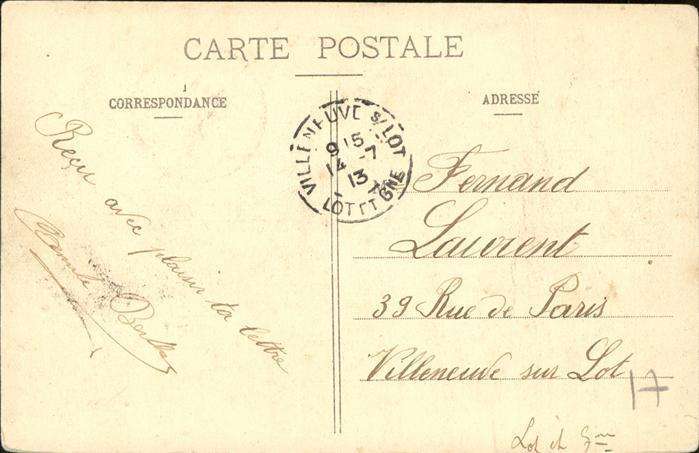 CARTE POSTALE
CORRESPONDANCE
ADRESSE
VILLENEUVE S/LOT
9 15
14 -7
13
LOT ET GNE
Reçu avec plaisir ta lettre
Fernand
Laurent
39 Rue de Paris
Villeneuve sur Lot
17
Lot et Gne